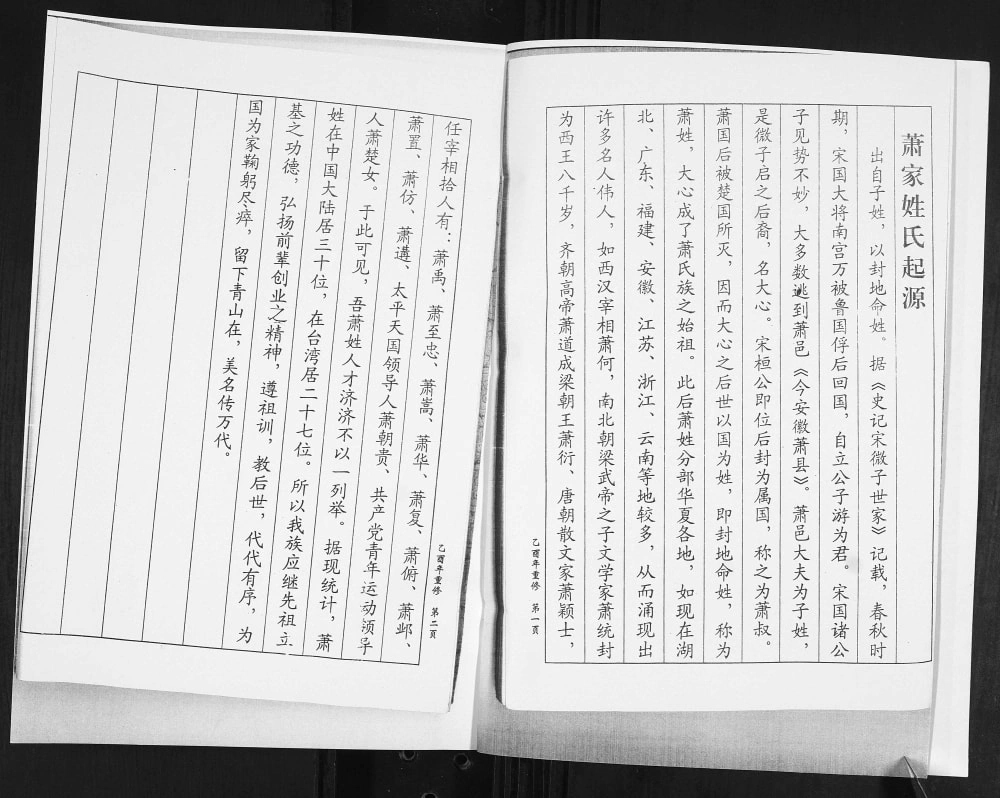 萧家姓氏起源
出自子姓，以封地命姓。据《史记宋微子世家》记载，春秋时
期，宋国大将南宫万被鲁国俘后回国，自立公子游为君。宋国诸公
子见势不妙，大多数逃到萧邑《今安徽萧县》。萧邑大夫为子姓，
是微子启之后裔，名大心。宋桓公即位后封为属国，称之为萧叔。
萧国后被楚国所灭，因而大心之后世以国为姓，即封地命姓，称为
萧姓，大心成了萧氏族之始祖。此后萧姓分部华夏各地，如现在湖
北、广东、福建、安徽、江苏、浙江、云南等地较多，从而涌现出
许多名人伟人，如西汉宰相萧何，南北朝梁武帝之子文学家萧统封
为西王八千岁，齐朝高帝萧道成梁朝王萧衍、唐朝散文家萧颖士，
乙酉年重修 第一页
任宰相拾人有：萧禹、萧至忠、萧嵩、萧华、萧复、萧俯、萧邺、
萧置、萧仿、萧遘、太平天国领导人萧朝贵、共产党青年运动领导
人萧楚女。于此可见，吾萧姓人才济济不以一列举。据现统计，萧
姓在中国大陆居三十位，在台湾居二十七位。所以我族应继先祖立
基之功德，弘扬前辈创业之精神，遵祖训，教后世，代代有序，为
国为家鞠躬尽瘁，留下青山在，美名传万代。
乙酉年重修 第二页